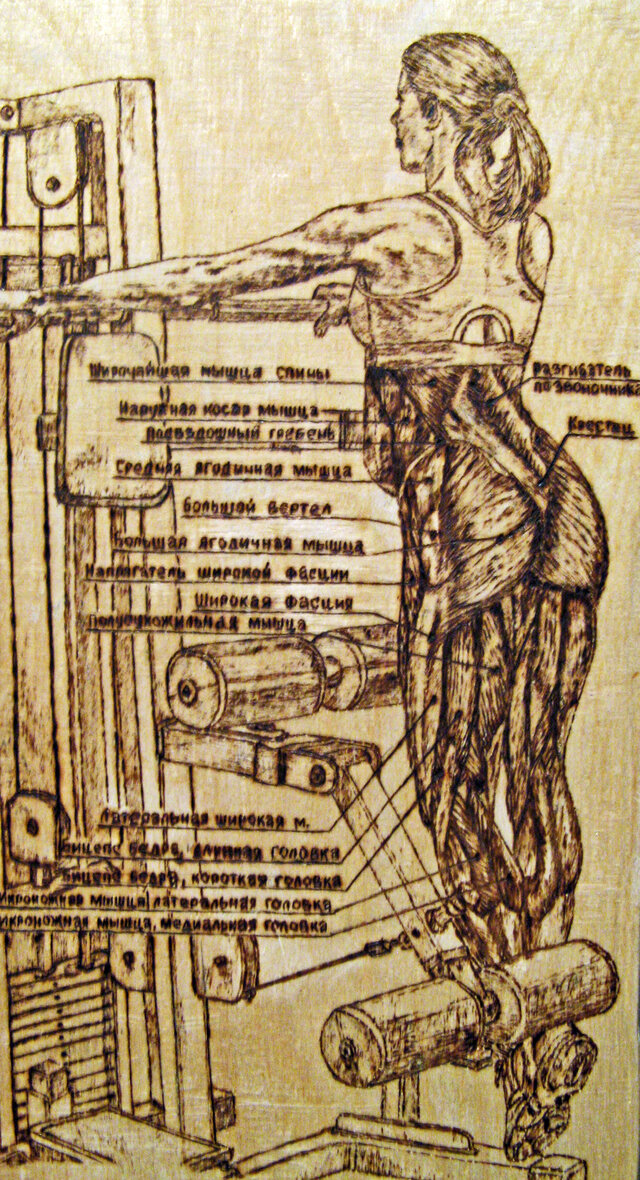 Широчайшая мышца спины
Разгибатель
позвоночника
Наружная косая мышца
Крестец
Подвздошный гребень
Средняя ягодичная мышца
Большой вертел
Большая ягодичная мышца
Напрягатель широкой фасции
Широкая фасция
Полусухожильная мышца
Латеральная широкая м.
Бицепс бедра, длинная головка
Бицепс бедра, короткая головка
Икроножная мышца, латеральная головка
Икроножная мышца, медиальная головка